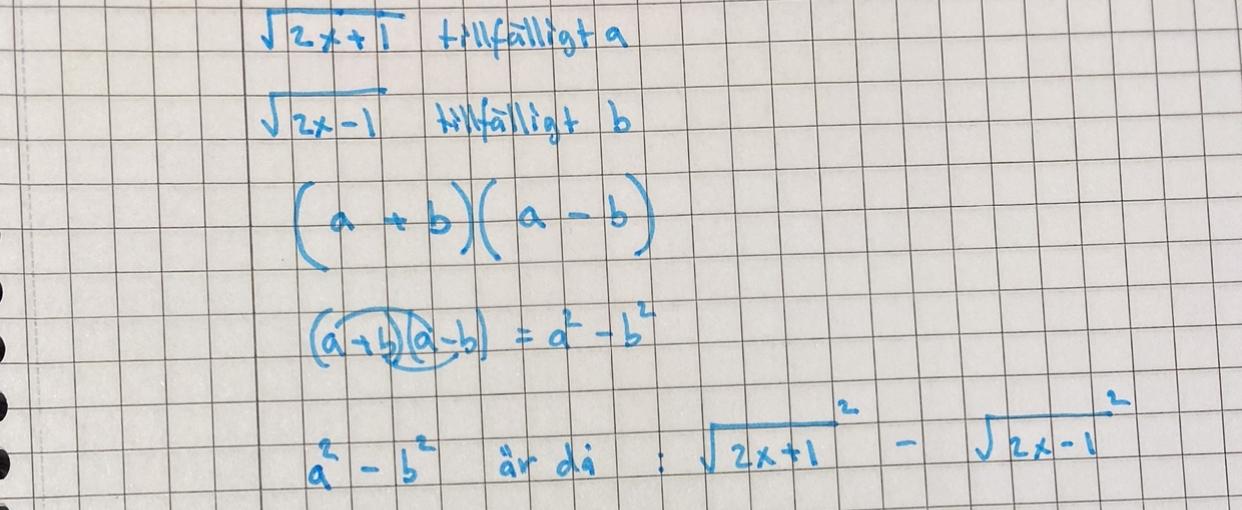 √(2x+1) tillfälligt a
√(2x-1) tillfälligt b
(a + b)(a - b)
(a+b)(a-b) = a² - b²
a² - b² är då : √(2x+1)² - √(2x-1)²